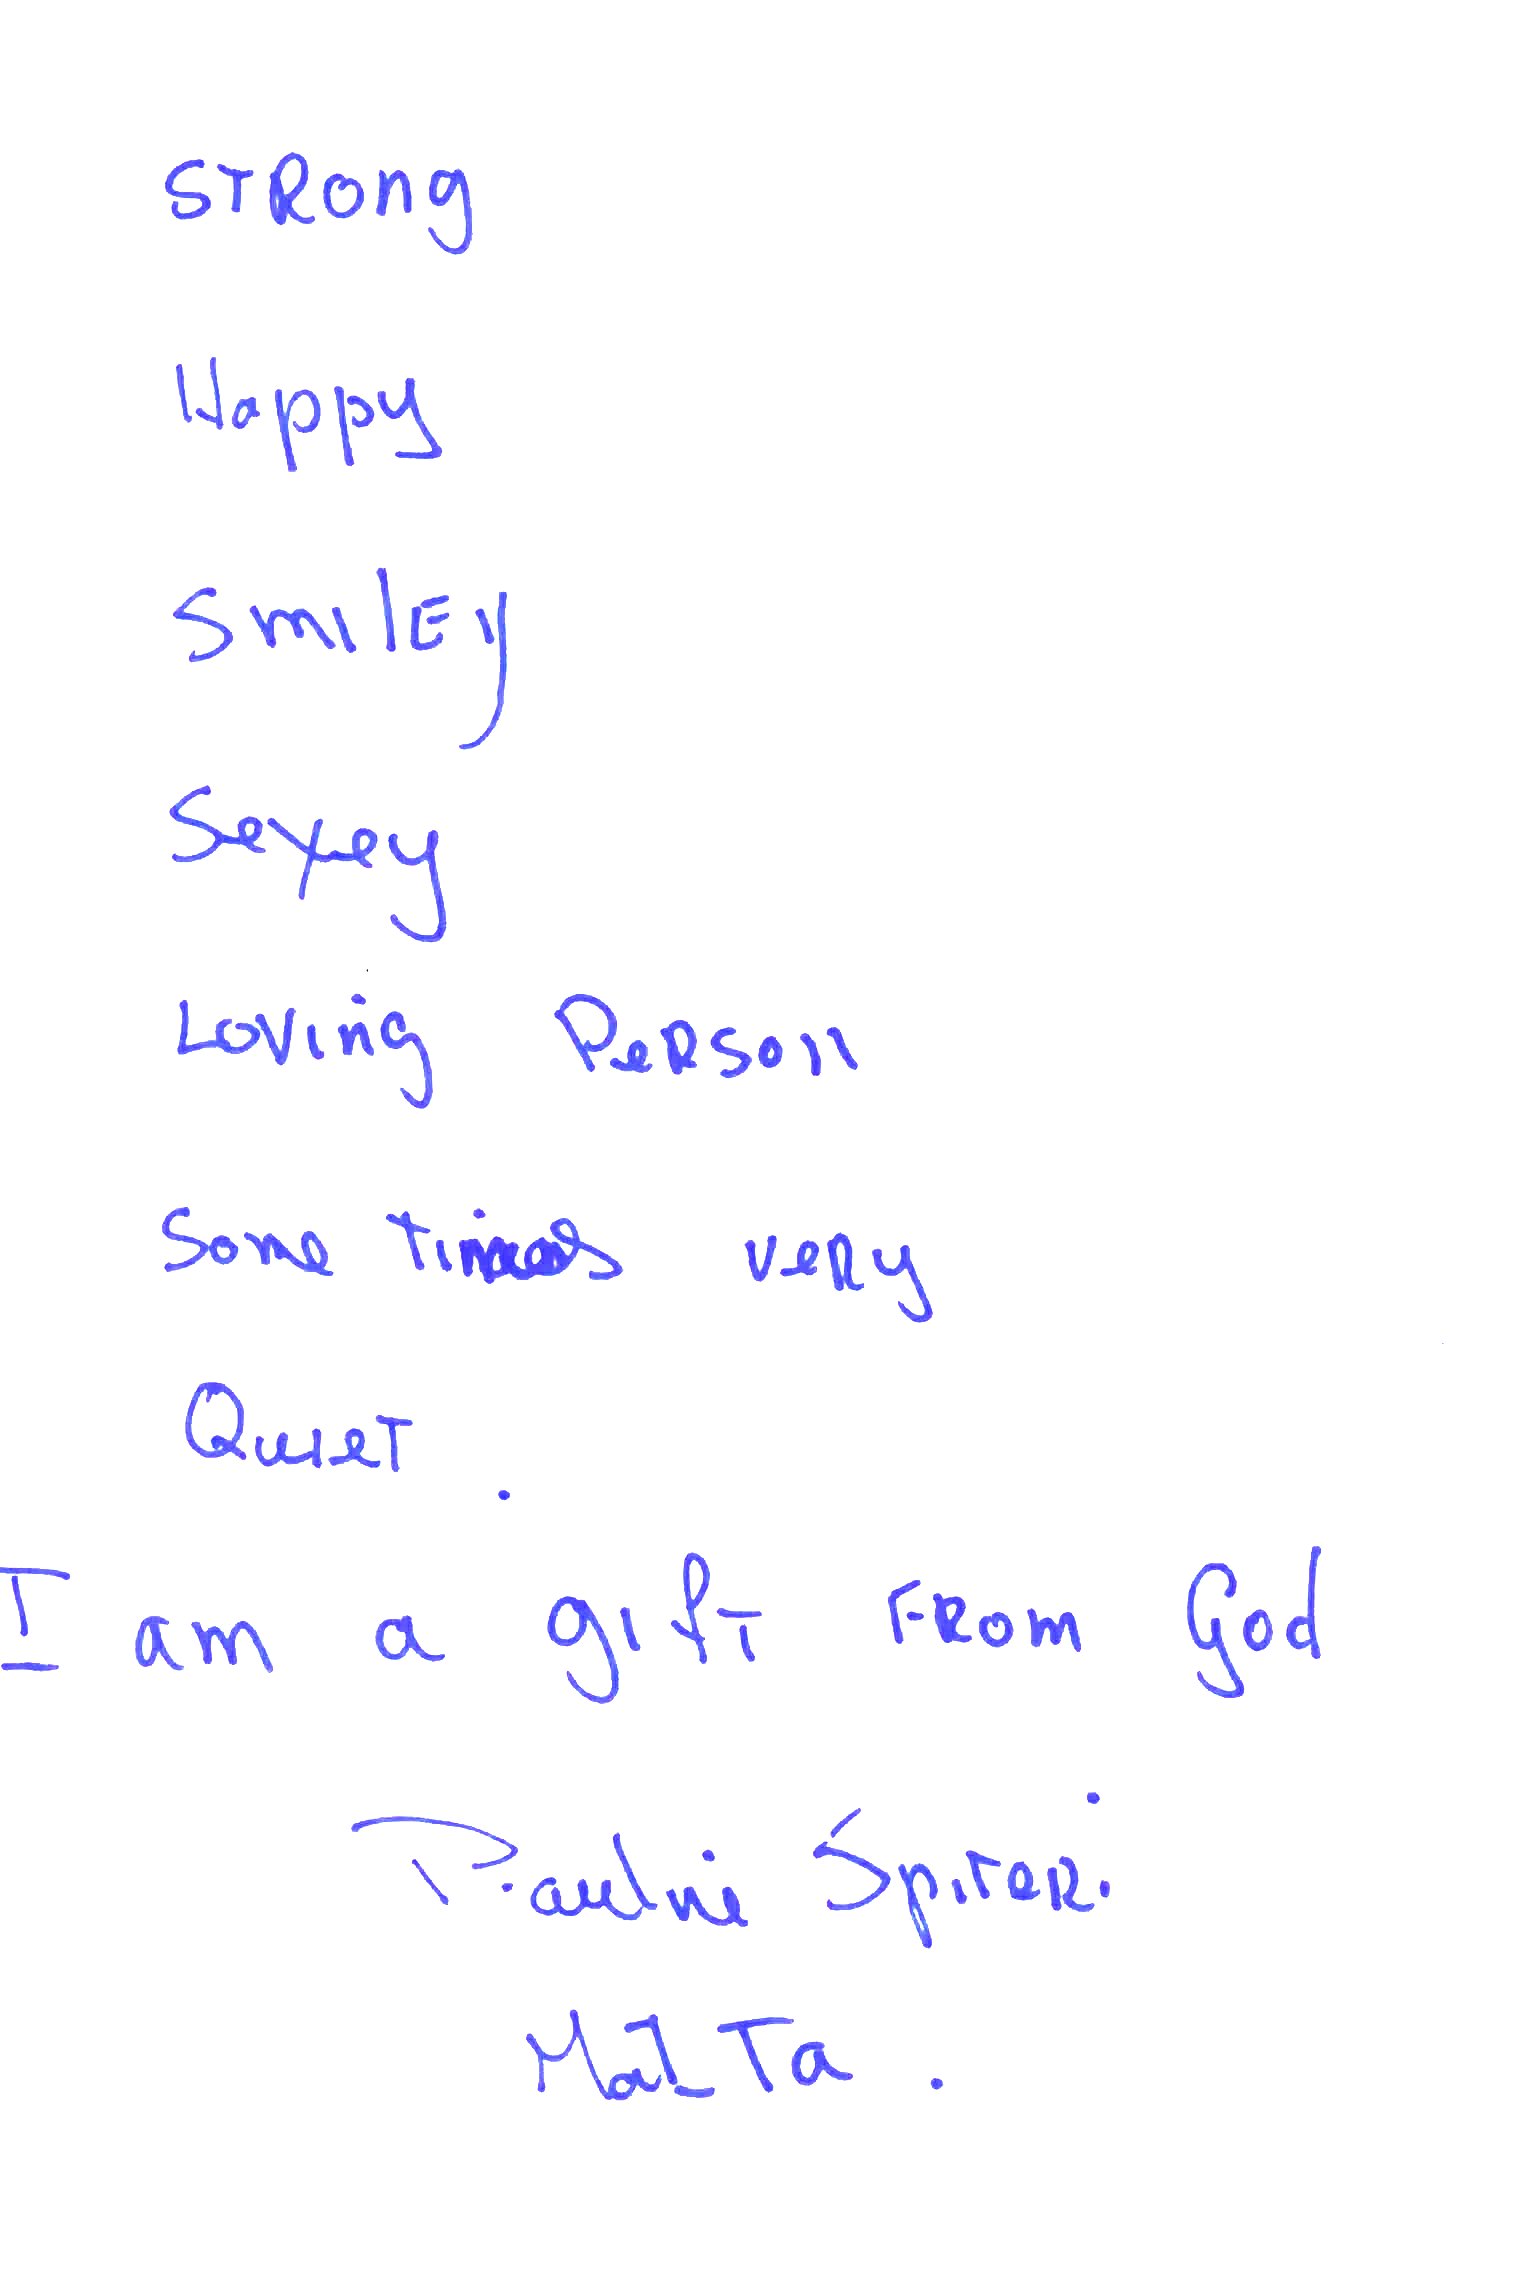 STRong
Happy
SmilEy
Sexey
Loving Person
Some times very
Quiet.
I am a gift From God
Pauline Spiteri
Malta.